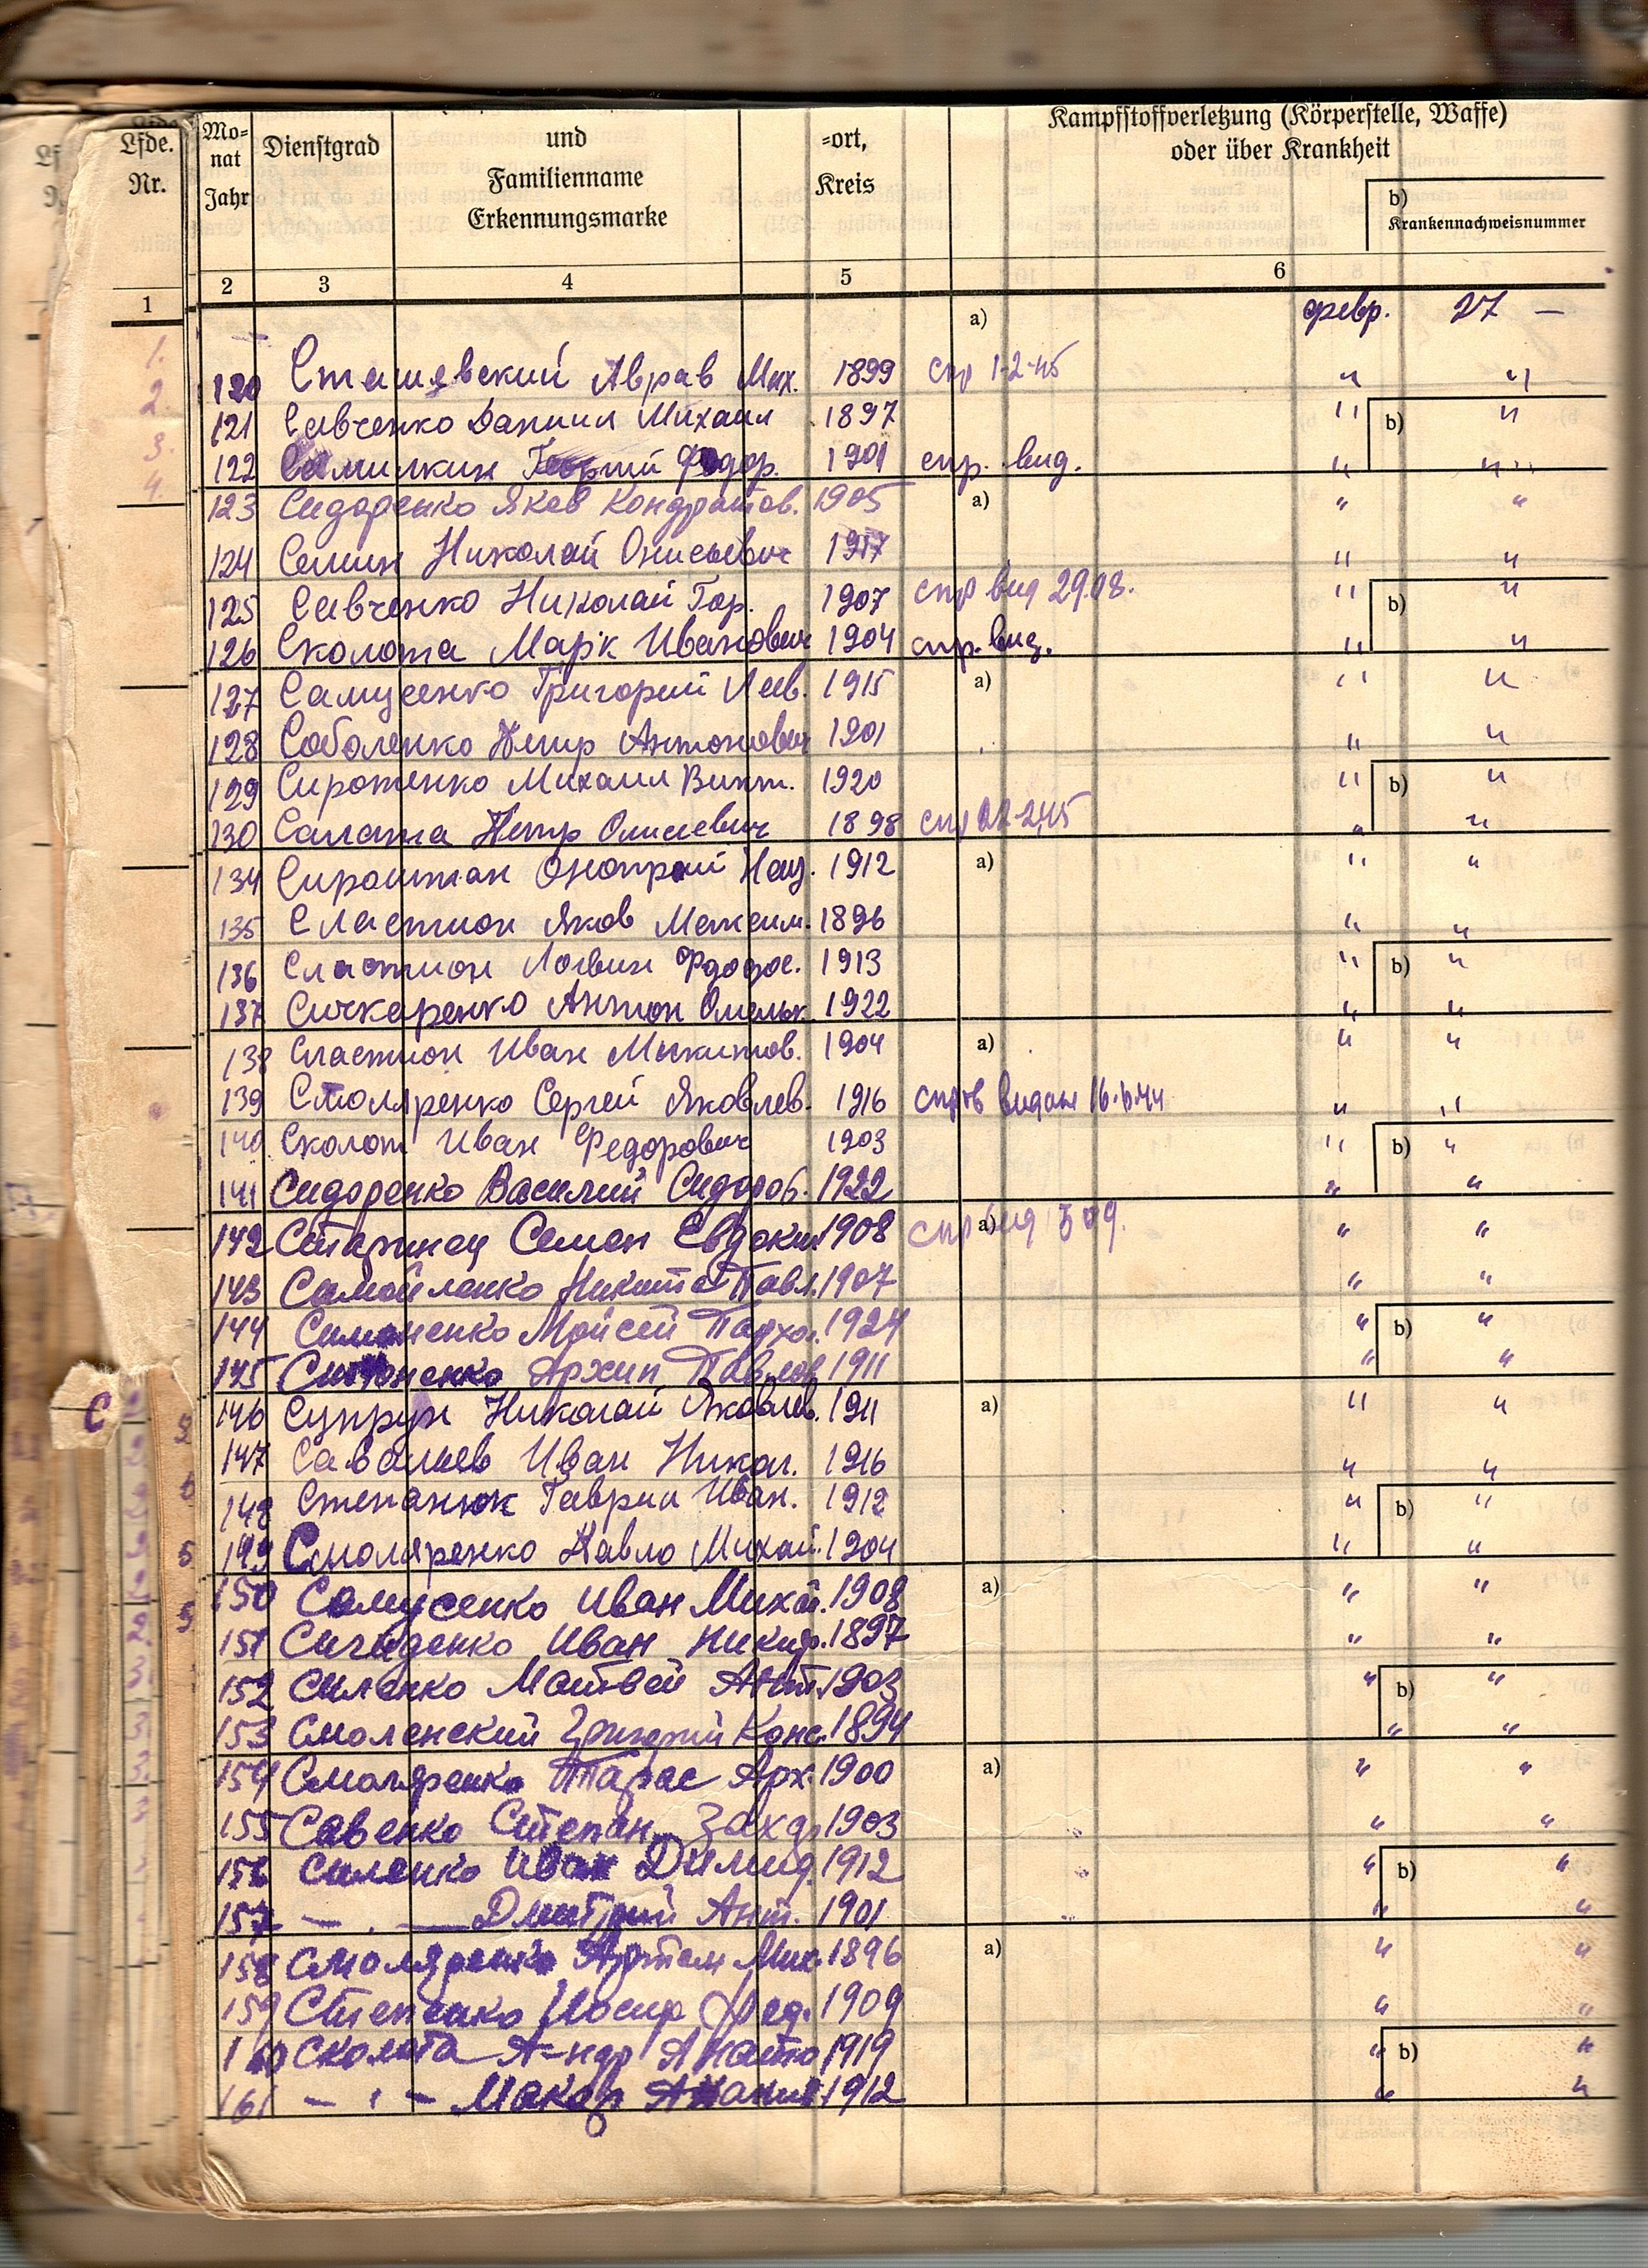 Lfde. Nr.
Mo-nat Jahr
Dienstgrad
und Familienname Erkennungsmarke
=ort, Kreis
Kampfstoffverletzung (Körperstelle, Waffe) oder über Krankheit
b) Krankennachweisnummer
1 2 3 4 5 6
a) февр. 27 —
1.
2.
3.
4.
120 Сташевский Аврав Мих. 1899 спр 1-2-45 " "
121 Савченко Данил Михаил 1897 " b) "
122 Самилкин Георгий Федор. 1901 спр. вид. " "
123 Сидоренко Яков Кондратов. 1905 a) " "
124 Семин Николай Онисьевич 1917 " "
125 Савченко Николай Гор. 1907 спр вид 29.08. " b) "
126 Сколота Марк Иванович 1904 спр. вид. " "
127 Самусенко Григорий 1915 a) " "
128 Соболенко Петр Антонович 1901 " "
129 Сиротенко Михаил Викт. 1920 " b) "
130 Салата Петр Олисеевич 1898 " "
134 Сироштан Оноприй 1912 a) " "
135 Сластион Яков Максим. 1896 " "
136 Сластион Логвин Фдодос. 1913 " b) "
137 Сичкаренко Антон Омельк. 1922 " "
138 Сластион Иван Микитов. 1904 a) " "
139 Столяренко Сергей Яковлев. 1916 видан 16.6.44 " "
140. Сколот Иван Федорович 1903 " b) "
141 Сидоренко Василий Сидоров. 1922 " "
142 Старинец Семен Евдоким 1908 спр вид a) " "
143 Самойленко Никита Павл. 1907 " "
144 Симоненко Мойсей Пархо. 1924 " b) "
145 Архип Павлов 1911 " "
146 Супрун Николай Яковлев. 1911 a) " "
147 Савельев Иван Никол. 1916 " "
148 Степанюк Гаврил Иван. 1912 " b) "
149 Смоляренко Павло Михай. 1904 " "
150 Самусенко Иван Михай. 1908 a) " "
151 Иван Никиф. 1897 " "
152 Силенко Матвей Ант. 1903 " b) "
153 Смоленский Григорий Конс. 1894 " "
154 Смоляренко Тарас Арх. 1900 a) " "
155 Савенко Степан Захар 1903 " "
156 Силенко Иван Димид. 1912 " b) "
157 — . — Дмитрий Ант. 1901 " "
158 Смоляренко Артем Мих. 1896 a) " "
159 Степенко Иосип Фед. 1909 " "
160 Сколота А-ндр Анато 1919 " b) "
161 — . — Макар 1912 " "
С